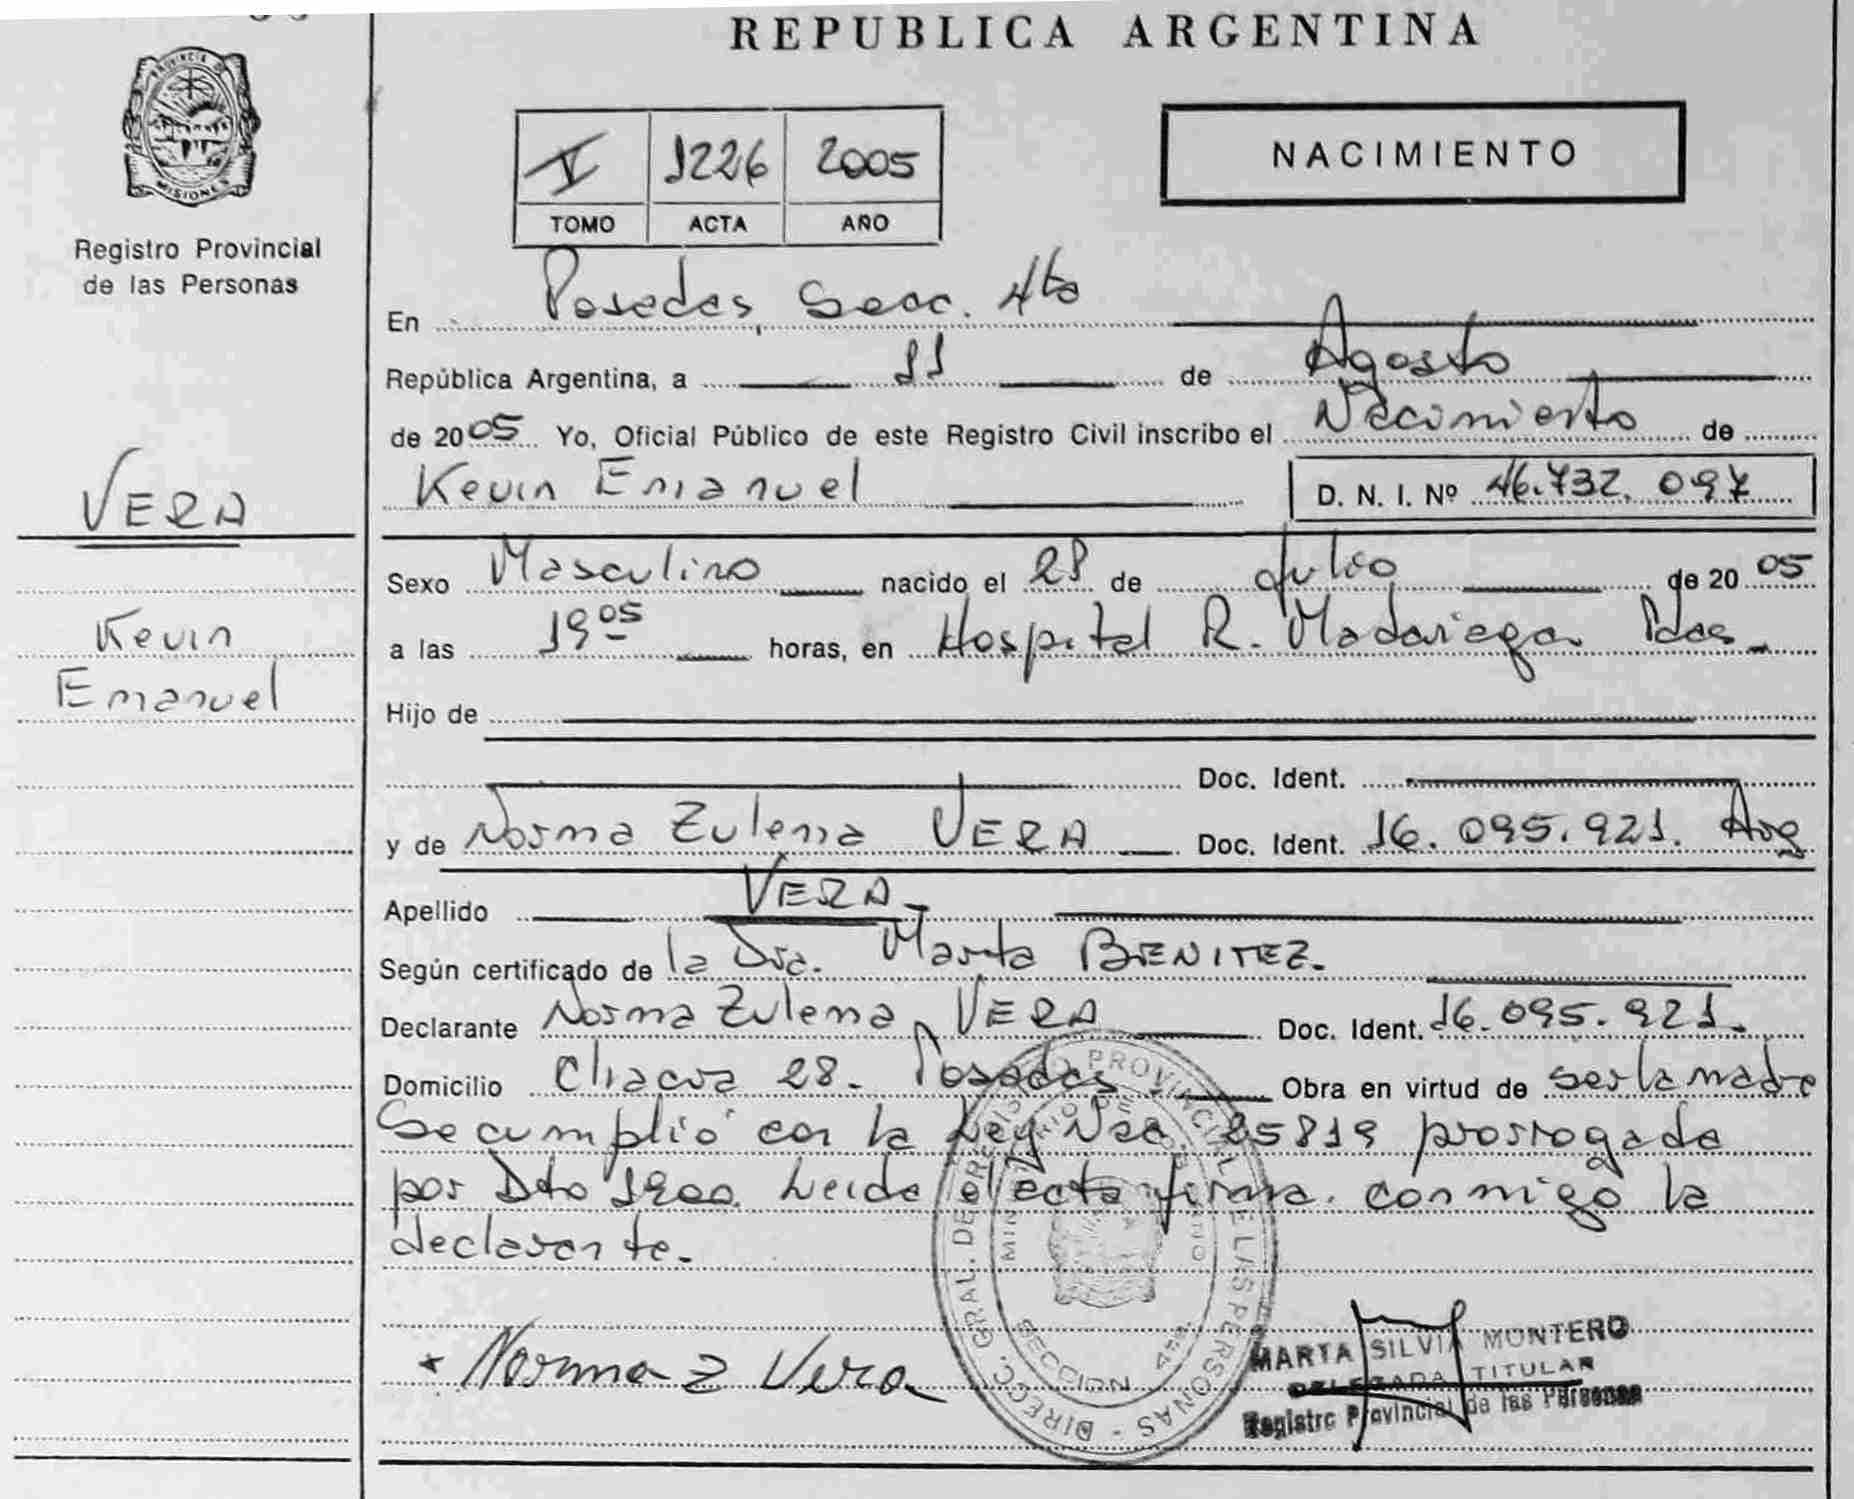 REPUBLICA ARGENTINA
PROVINCIA DE
MISIONES
Registro Provincial
de las Personas
V 1226 2005
TOMO ACTA AÑO
NACIMIENTO
En Posadas, Secc. 4ta
República Argentina, a 11 de Agosto
de 2005 Yo, Oficial Público de este Registro Civil inscribo el Nacimiento de
Kevin Emanuel D. N. I. Nº 46.732.097
VERA
Kevin
Emanuel
Sexo Masculino nacido el 28 de Julio de 2005
a las 19 05 horas, en Hospital R. Madariaga. Pdas.
Hijo de
Doc. Ident.
y de Norma Zulema VERA Doc. Ident. 16.095.921. Arg
Apellido VERA
Según certificado de la Dra. Marta BENITEZ.
Declarante Norma Zulema VERA Doc. Ident. 16.095.921.
Domicilio Chacra 28. Posadas Obra en virtud de ser la madre
Se cumplió con la Ley Nac. 25819 prorrogada
por Dto 1900. Leida el acta firma conmigo la
declarante.
Norma Z Vera
DIRECC. GRAL. DE REGISTRO PROVINCIAL DE LAS PERSONAS
SECCION 4ta
MARTA SILVIA MONTERO
DELEGADA TITULAR
Registro Provincial de las Personas